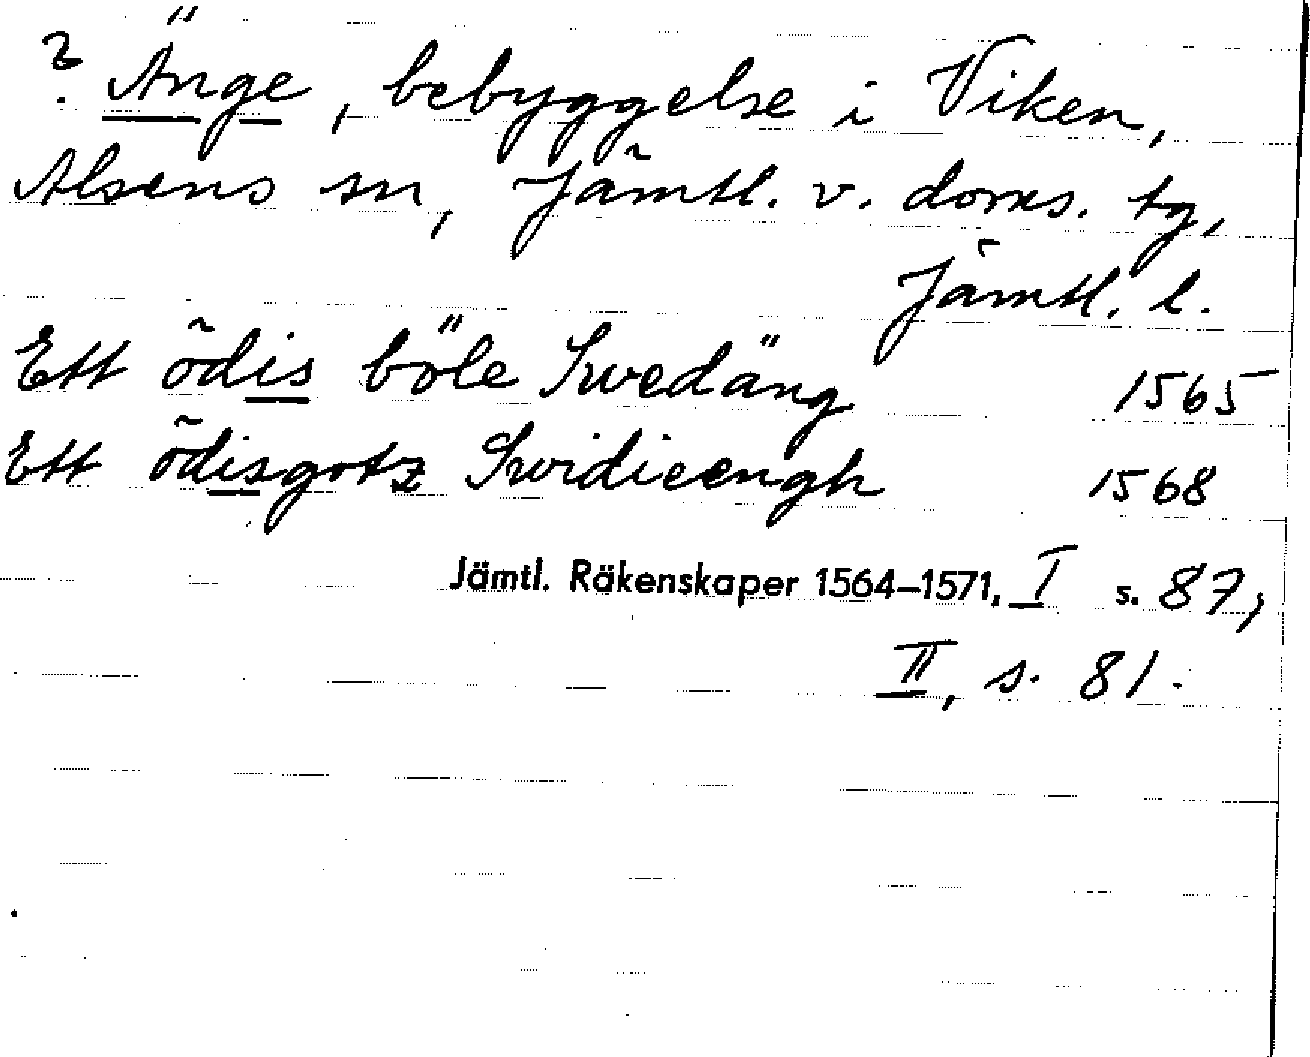 ? Änge, bebyggelse i Viken,
Alsens sn, Jämtl. v. doms. tg,
Jämtl. l.
Ett õdis böle Swedäng 1565
Ett õdisgotz Swidieengh 1568
Jämtl. Räkenskaper 1564–1571, I s. 87,
II, s. 81.